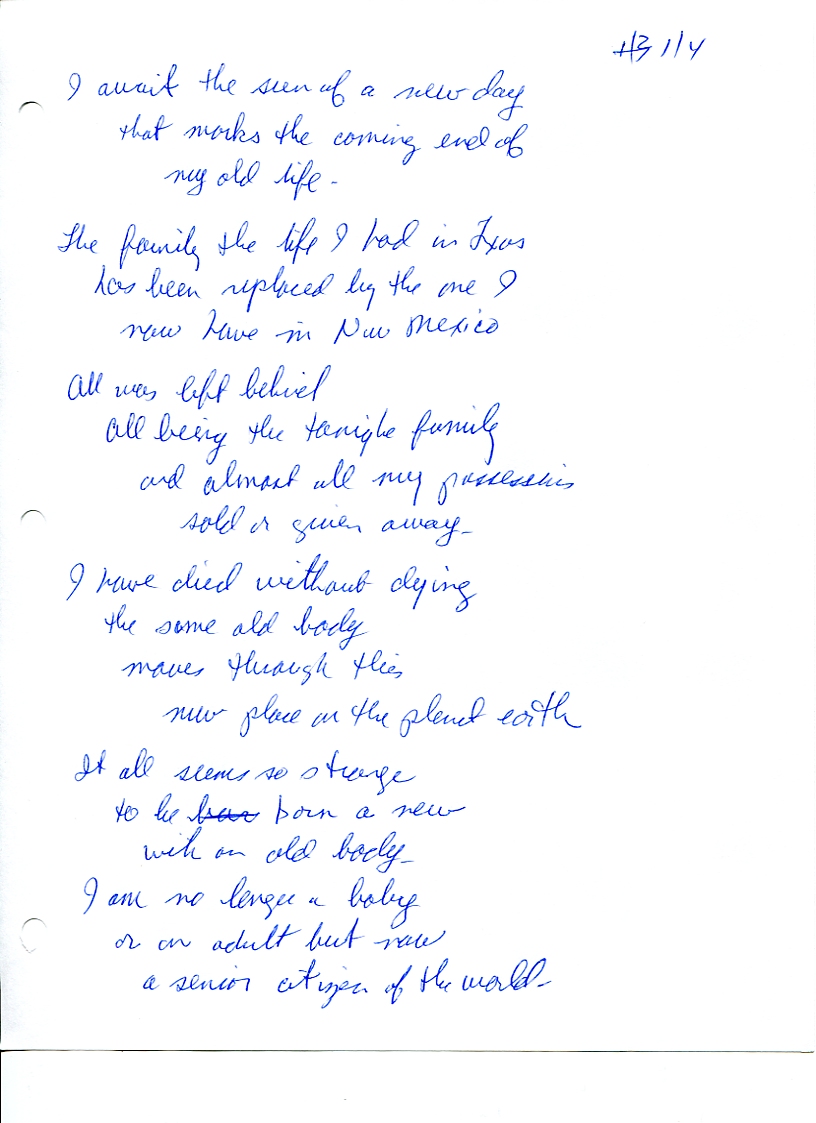 #3 1/4
I await the sun of a new day
that marks the coming end of
my old life -
The family the life I had in Texas
has been replaced by the one I
now have in New Mexico
All was left behind
all being the family
and almost all my possessions
sold or given away -
I have died without dying
the same old body
moves through this
new place on the planet earth
It all seems so strange
to be born a new
with an old body -
I am no longer a baby
or an adult but now
a senior citizen of the world -